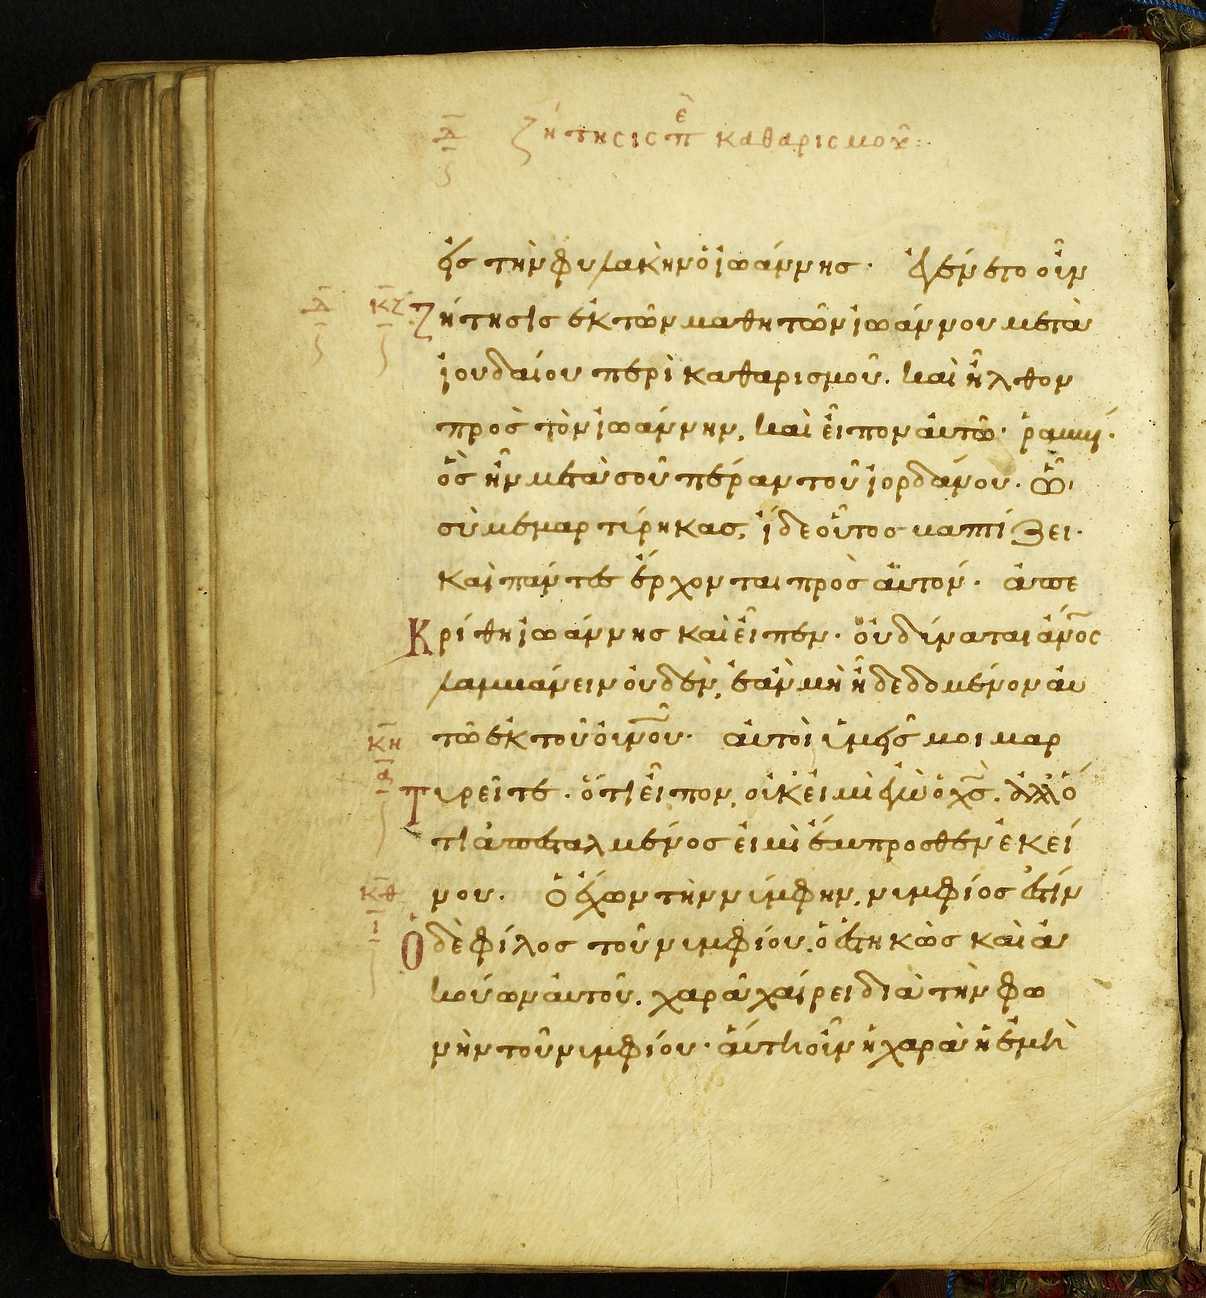 Δ ζήτησις πε καθαρισμοῦ:
εἰς τὴν φυλακὴν ὁ ἰωάννης. ἐγένετο οὖν
Δ ΚΖ ζήτησις ἐκ τῶν μαθητῶν ἰωάννου μετὰ
ἰουδαίου περὶ καθαρισμοῦ. καὶ ἦλθον
πρὸς τὸν ἰωάννην, καὶ εἶπον αὐτῶ. ῥαββί.
ὃς ἦν μετὰ σοῦ πέραν τοῦ ἰορδάνου. ὧ
σὺ μεμαρτύρηκας, ἴδε οὗτος βαπτίζει.
καὶ πάντες ἔρχονται πρὸς αὐτόν. ἀπε
κρίθη ἰωάννης καὶ εἶπεν. οὐ δύναται ἄνος
λαμβάνειν οὐδέν, ἐὰν μὴ ἦ δεδομένον αὐ
ΚΗ τῶ ἐκ τοῦ οὐνοῦ. αὐτοὶ ὑμεῖς μοι μαρ
Α τυρεῖτε. ὅτι εἶπον, οὐκ εἰμὶ ἐγὼ ὁ χς. ἀλλ ὅ
τι ἀπεσταλμένος εἰμὶ ἔμπροσθεν ἐκεί
ΚΘ νου. ὁ ἔχων τὴν νύμφην, νυμφίος ἐστίν
Ι ὁ δὲ φίλος τοῦ νυμφίου, ὁ ἑστηκὼς καὶ ἀ
κούων αὐτοῦ, χαρᾶ χαίρει διὰ τὴν φω
νὴν τοῦ νυμφίου. αὕτη οὖν ἡ χαρὰ ἡ ἐμὴ